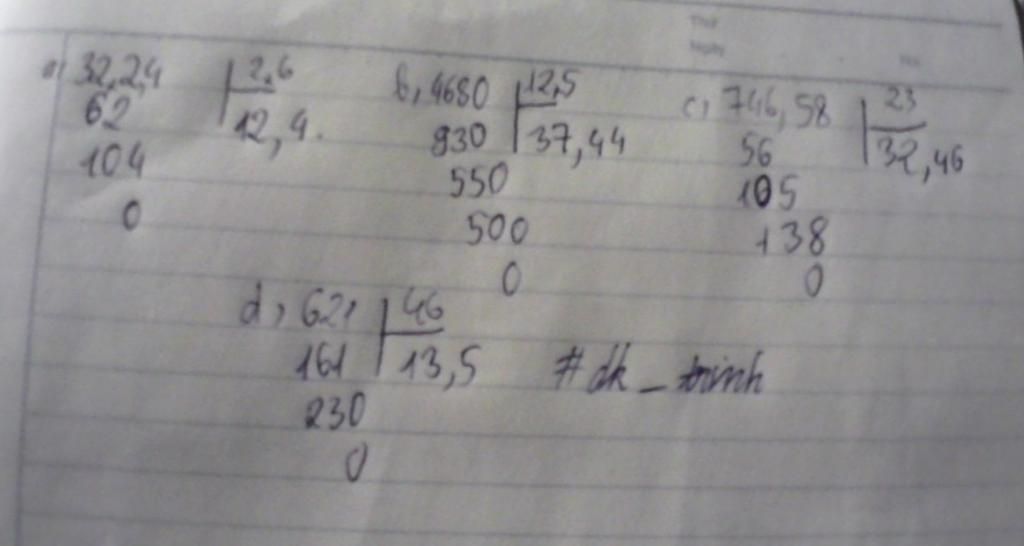 Thứ
Ngày No.
a, 32,2,4 2,6
62 12,4.
104
0
b, 4680 12,5
930 37,44
550
500
0
c, 746,58 23
56 32,46
105
138
0
d, 621 46
161 13,5
230
0
#dk_trinh